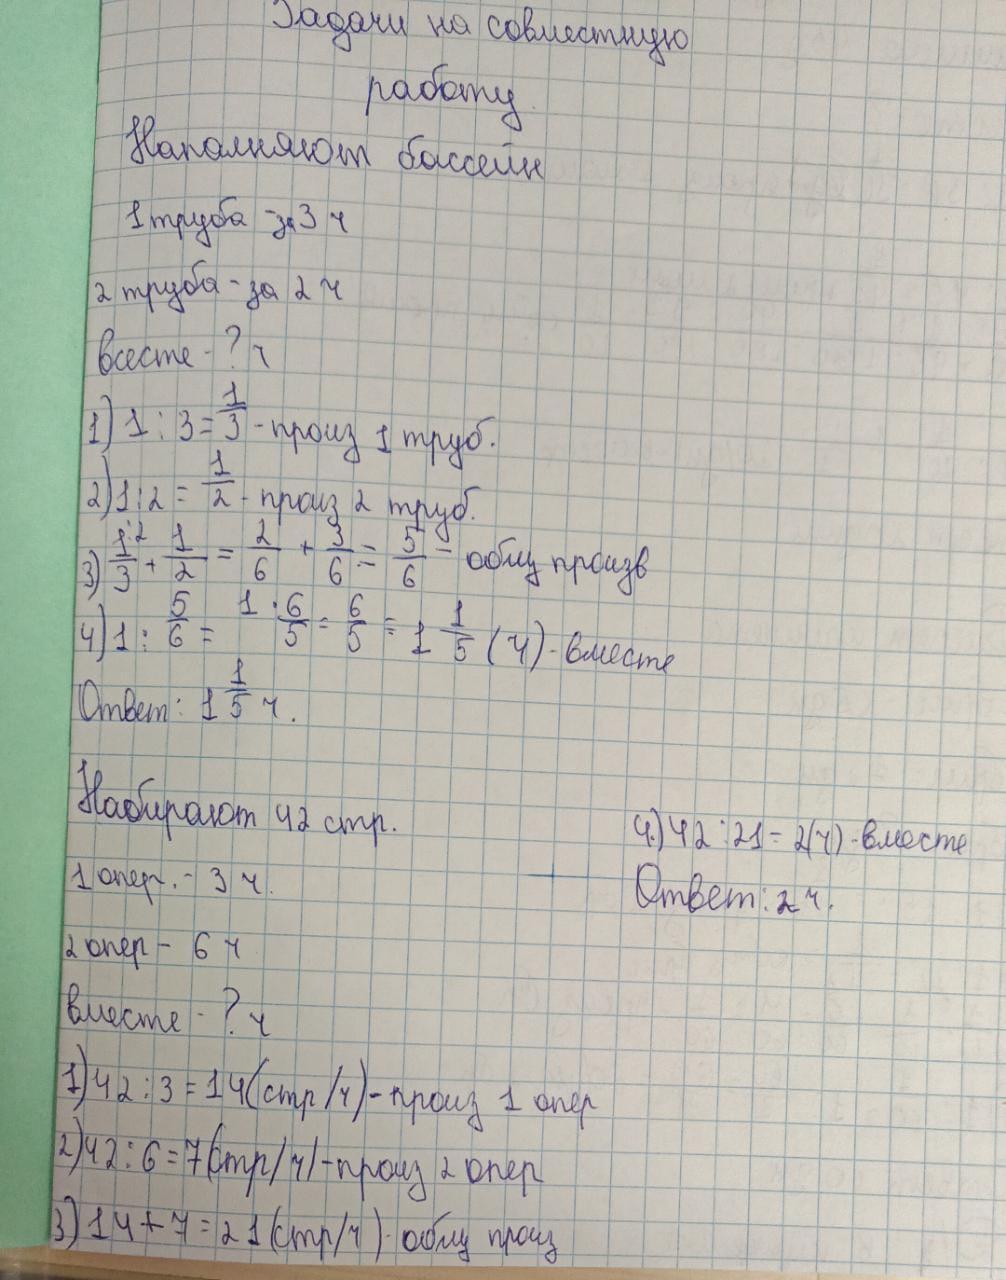 Задачи на совместную
работу.
Наполняют бассейн
1 труба - за 3 ч
2 труба - за 2 ч
всесте - ? ч
1) 1 : 3 = 1/3 - произ 1 труб.
2) 1 : 2 = 1/2 - произ 2 труб.
3) 1/3 ·2 + 1/2 = 2/6 + 3/6 = 5/6 - общ произв
4) 1 : 5/6 = 1 · 6/5 = 6/5 = 1 1/5 (ч) - вместе
Ответ: 1 1/5 ч.
Набирают 42 стр.
1 опер. - 3 ч.
2 опер - 6 ч
вместе - ? ч
1) 42 : 3 = 14 (стр/ч) - произ 1 опер
2) 42 : 6 = 7 (стр/ч) - произ 2 опер
3) 14 + 7 = 21 (стр/ч) - общ произ
4.) 42 : 21 = 2 (ч) - вместе
Ответ: 2 ч.